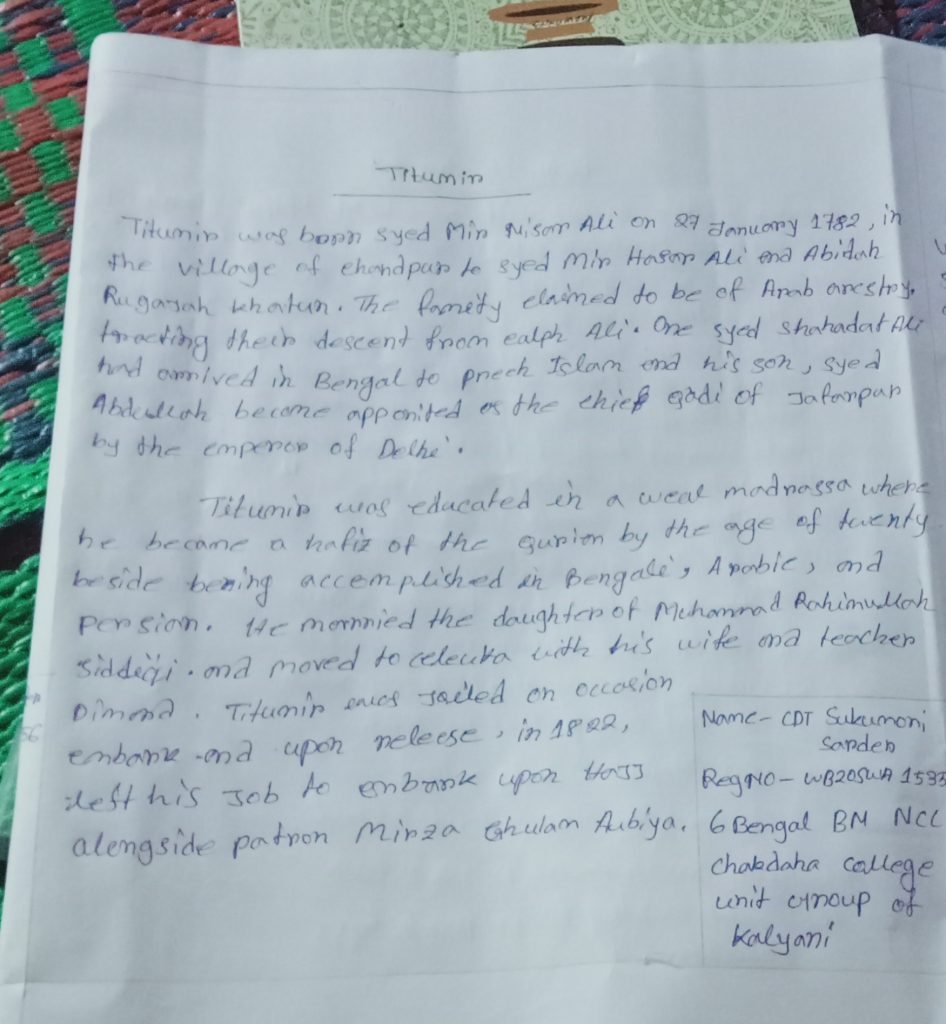 Titumir
Titumir was born syed Mir Nisar Ali on 27 January 1782, in
the village of chandpur to syed Mir Hasan Ali and Abidah
Rugayah khatun. The famety claimed to be of Arab ancstry.
tracting their descent from calph Ali. One syed shahadat Ali
had arrived in Bengal to prech Islam and his son, syed
Abdullah become apponited as the chief qadi of Jafarpur
by the emperor of Delhi.
Titumir was educated in a weal madrassa where
he became a hafiz of the qurion by the age of twenty
beside bening accomplished in Bengali, Arabic, and
persion. He marrried the daughter of Muhammad Rahimullah
siddeqi. and moved to celecuta with his wife and teacher
Dimond. Titumir was Jailed on occasion
embark and upon releese, in 1822,
left his Job to embark upon Hajj
alengside patron Mirza Ghulam Aubiya.
Name - CDT Sukumoni
Sarder
Reg NO - WB20SWA 1583
6 Bengal BM NCC
Chakdaha college
unit Group of
Kalyani
56